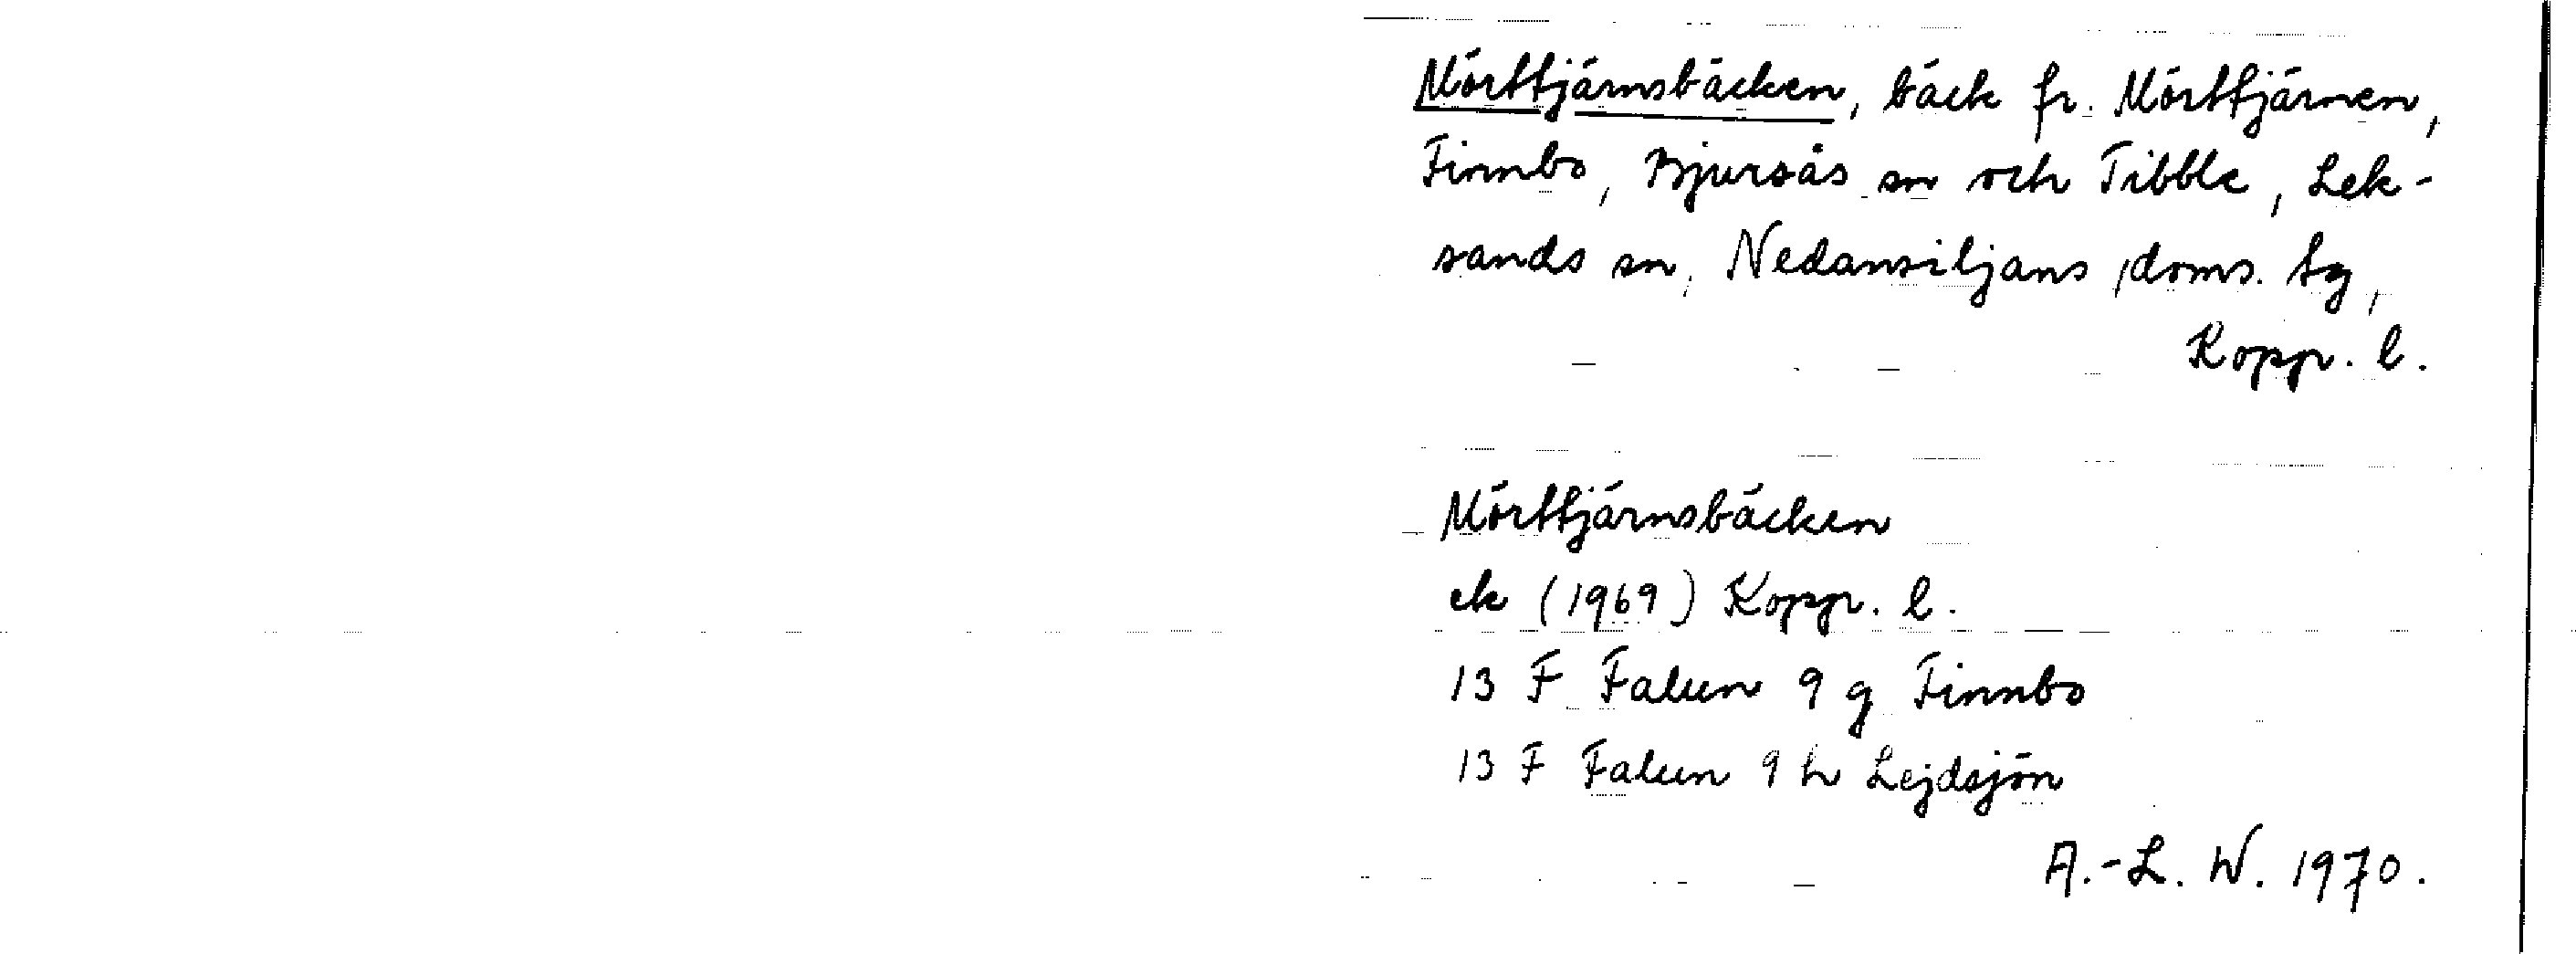 Mörttjärnsbäcken, bäck fr. Mörttjärnen,
Finnbo, Bjursås sn och Tibble, Lek-
sands sn, Nedansiljans doms. tg,
Kopp. l.
Mörttjärnsbäcken
ek (1969) Kopp. l.
13 F Falun 9 g Finnbo
13 F Falun 9 h Lejdsjön
A.-L. W. 1970.